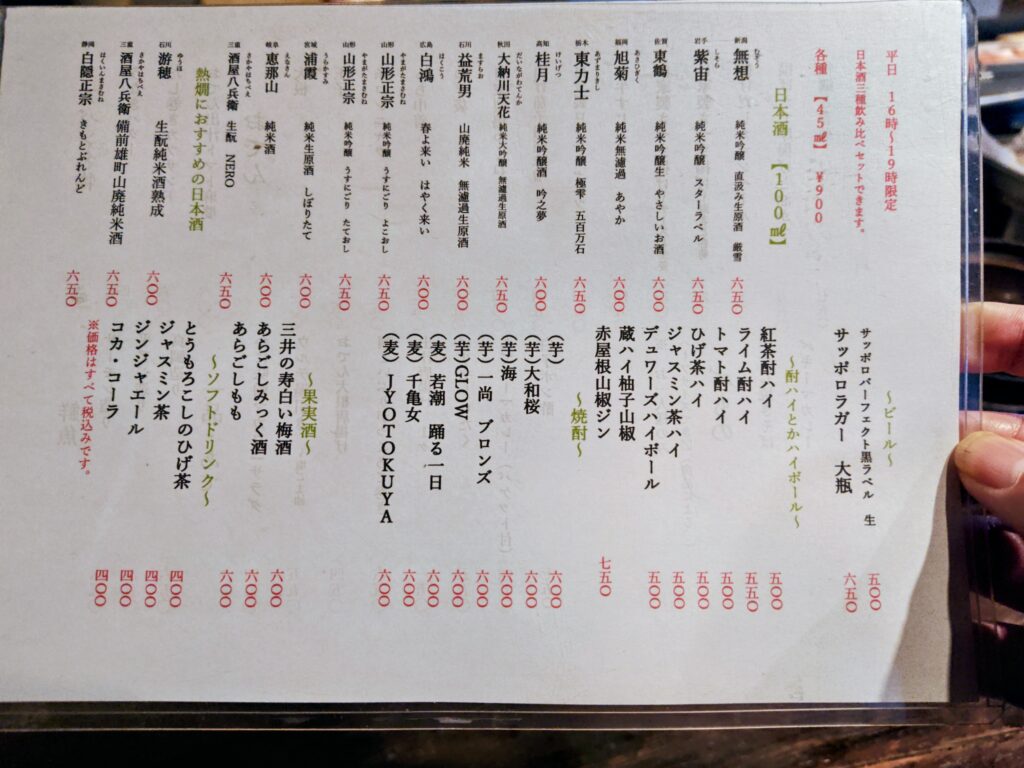 平日 16時～19時限定
日本酒三種飲み比べセットできます。
各種 【45㎖】 ¥900
日本酒 【100㎖】
新潟 無想 むそう 純米吟醸 直汲み生原酒 厳雪 六五〇
岩手 紫宙 しそら 純米吟醸 スターラベル 六五〇
佐賀 東鶴 純米吟醸生 やさしいお酒 六〇〇
福岡 旭菊 あさひぎく 純米無濾過 あやか 六〇〇
栃木 東力士 あずまりきし 純米吟醸 極雫 五百万石 六五〇
高知 桂月 けいげつ 純米吟醸酒 吟之夢 六〇〇
秋田 大納川天花 だいながわてんか 純米大吟醸 無濾過生原酒 六五〇
石川 益荒男 ますらお 山廃純米 無濾過生原酒 六〇〇
広島 白鴻 はくこう 春よ来い はやく来い 六〇〇
山形 山形正宗 やまがたまさむね 純米吟醸 うすにごり よこおし 六五〇
山形 山形正宗 やまがたまさむね 純米吟醸 うすにごり たておし 六五〇
宮城 浦霞 うらかすみ 純米生原酒 しぼりたて 六〇〇
岐阜 恵那山 えなさん 純米酒 六〇〇
三重 酒屋八兵衛 さかやはちべえ 生酛 NERO 六五〇
熱燗におすすめの日本酒
石川 遊穂 ゆうほ 生酛純米酒熟成 六〇〇
三重 酒屋八兵衛 さかやはちべえ 備前雄町山廃純米酒 六五〇
静岡 白隠正宗 はくいんまさむね きもとぶれんど 六五〇
～ビール～
サッポロパーフェクト黒ラベル 生 五〇〇
サッポロラガー 大瓶 六五〇
～酎ハイとかハイボール～
紅茶酎ハイ 五〇〇
ライム酎ハイ 五五〇
トマト酎ハイ 五〇〇
ひげ茶ハイ 五〇〇
ジャスミン茶ハイ 五〇〇
デュワーズハイボール 五〇〇
蔵ハイ柚子山椒
赤屋根山椒ジン 七五〇
～焼酎～
(芋) 六〇〇
(芋)大和桜 六〇〇
(芋)海 六〇〇
(芋)一尚 ブロンズ 六〇〇
(芋)GLOW 六〇〇
(麦) 若潮 踊る一日 六〇〇
(麦) 千亀女 六〇〇
(麦) JYOTOKUYA 六〇〇
～果実酒～
三井の寿白い梅酒 六〇〇
あらごしみっく酒 六〇〇
あらごしもも 六〇〇
～ソフトドリンク～
とうもろこしのひげ茶 四〇〇
ジャスミン茶 四〇〇
ジンジャエール 四〇〇
コカ・コーラ 四〇〇
※価格はすべて税込みです。